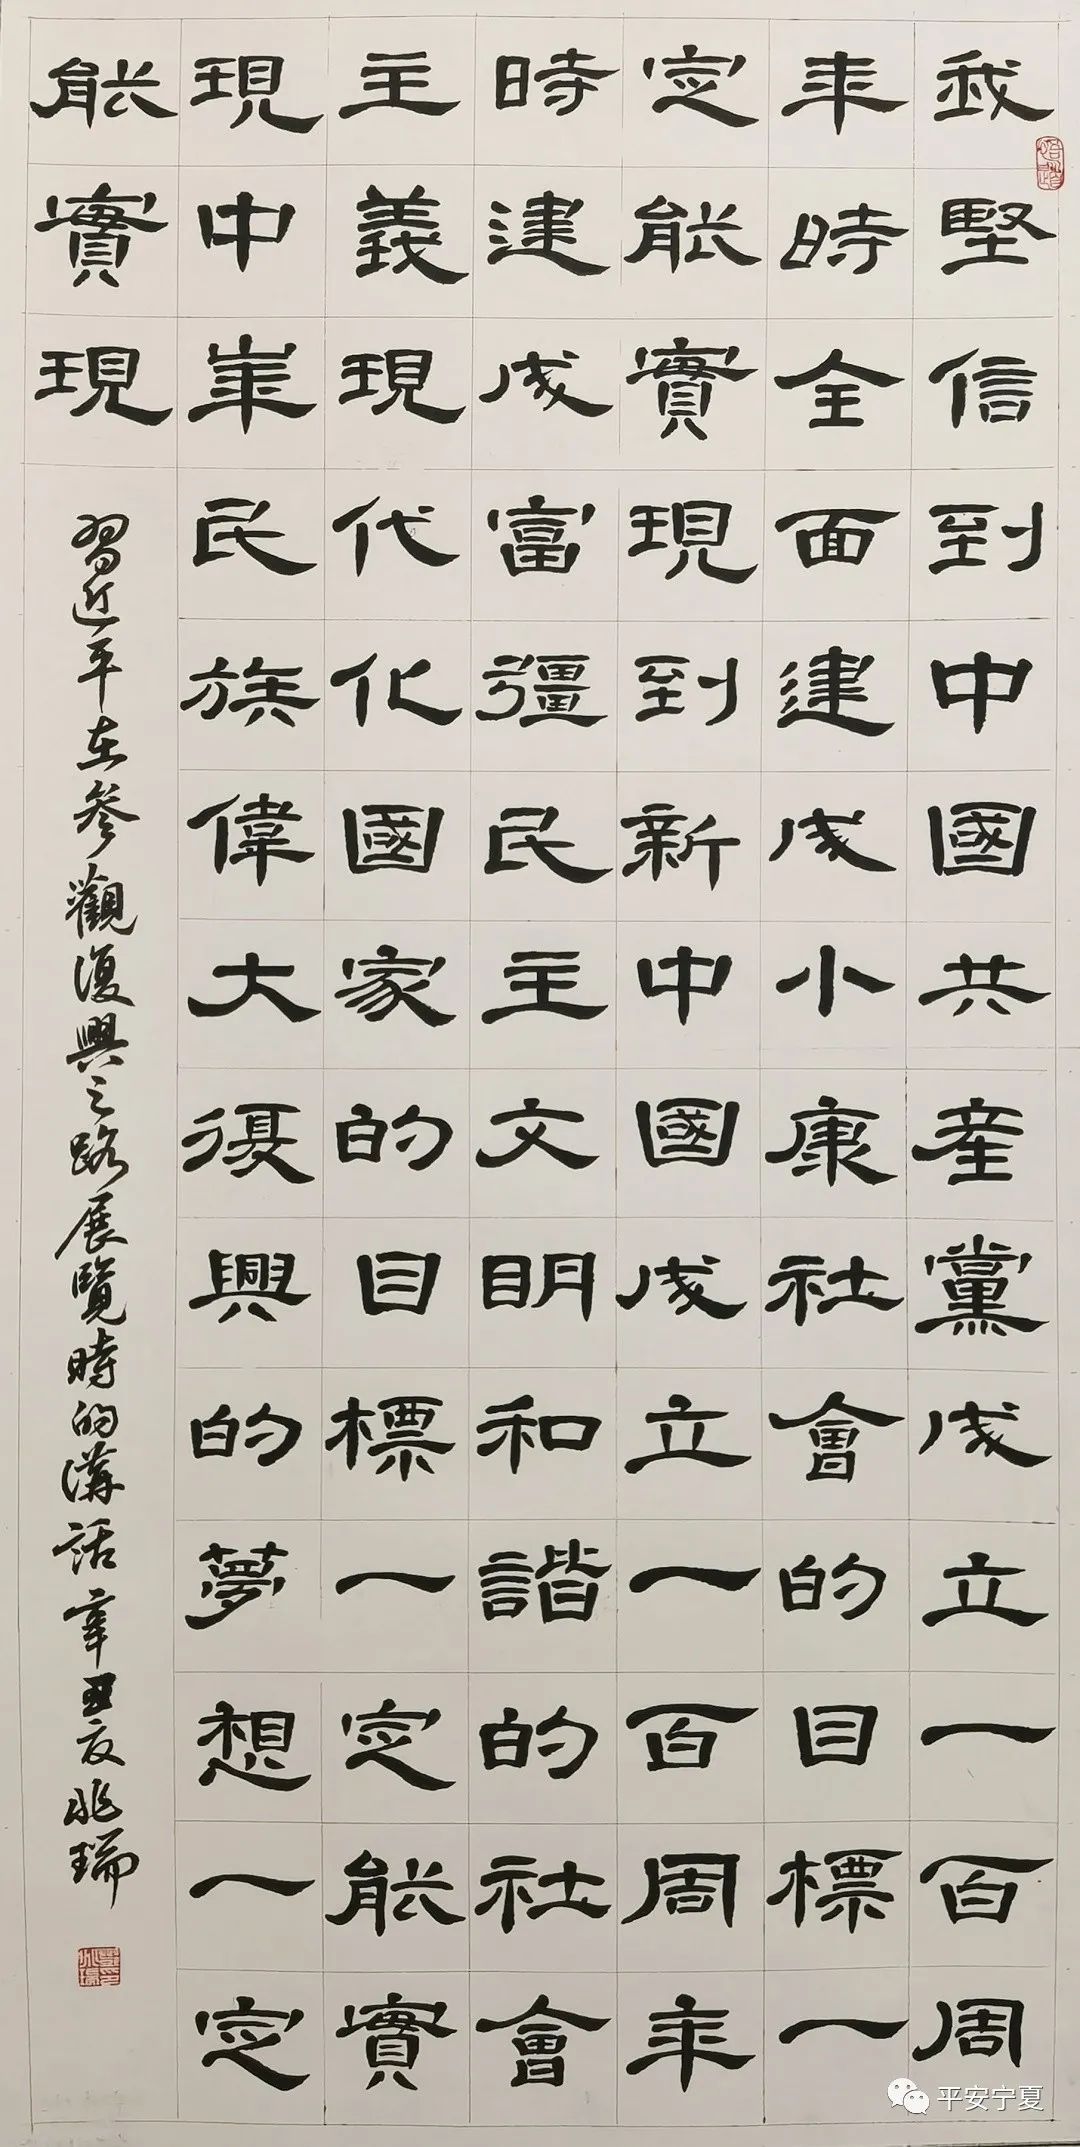 我堅信到中國共産黨成立一百周
年時全面建成小康社會的目標一
定能實現到新中國成立一百周年
時建成富彊民主文明和諧的社會
主義現代化國家的目標一定能實
現中華民族偉大復興的夢想一定
能實現
習近平在參觀復興之路展覽時的講話辛丑夏兆瑞
平安宁夏